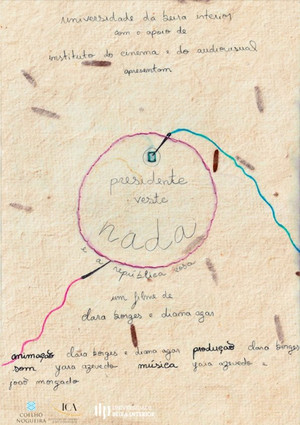 universidade da beira interior
com o apoio de
instituto do cinema e do audiovisual
apresentam
presidente
veste
nada
e a república cosa
um filme de
clara borges e diana agar
animação clara borges e diana agar produção clara borges
som yara azevedo música yara azevedo e
joão morgado
COELHO
NOGUEIRA
ICA
UNIVERSIDADE
BEIRA INTERIOR